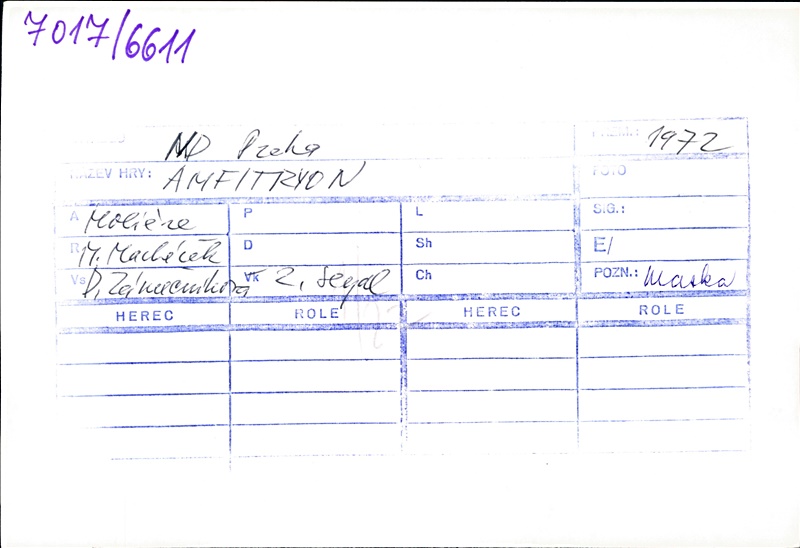 7017/6611
ND Praha PREM.: 1972
NÁZEV HRY: AMFITRYON FOTO
A Moliére P L SIG.:
R M. Macháček D Sh E/
Vs D. Zámečníková Vk Z. Segal Ch POZN.: Maska
HEREC ROLE HEREC ROLE